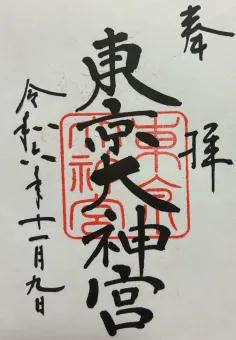 奉拝
東京大神宮
令和六年十一月九日
東京
大神宮